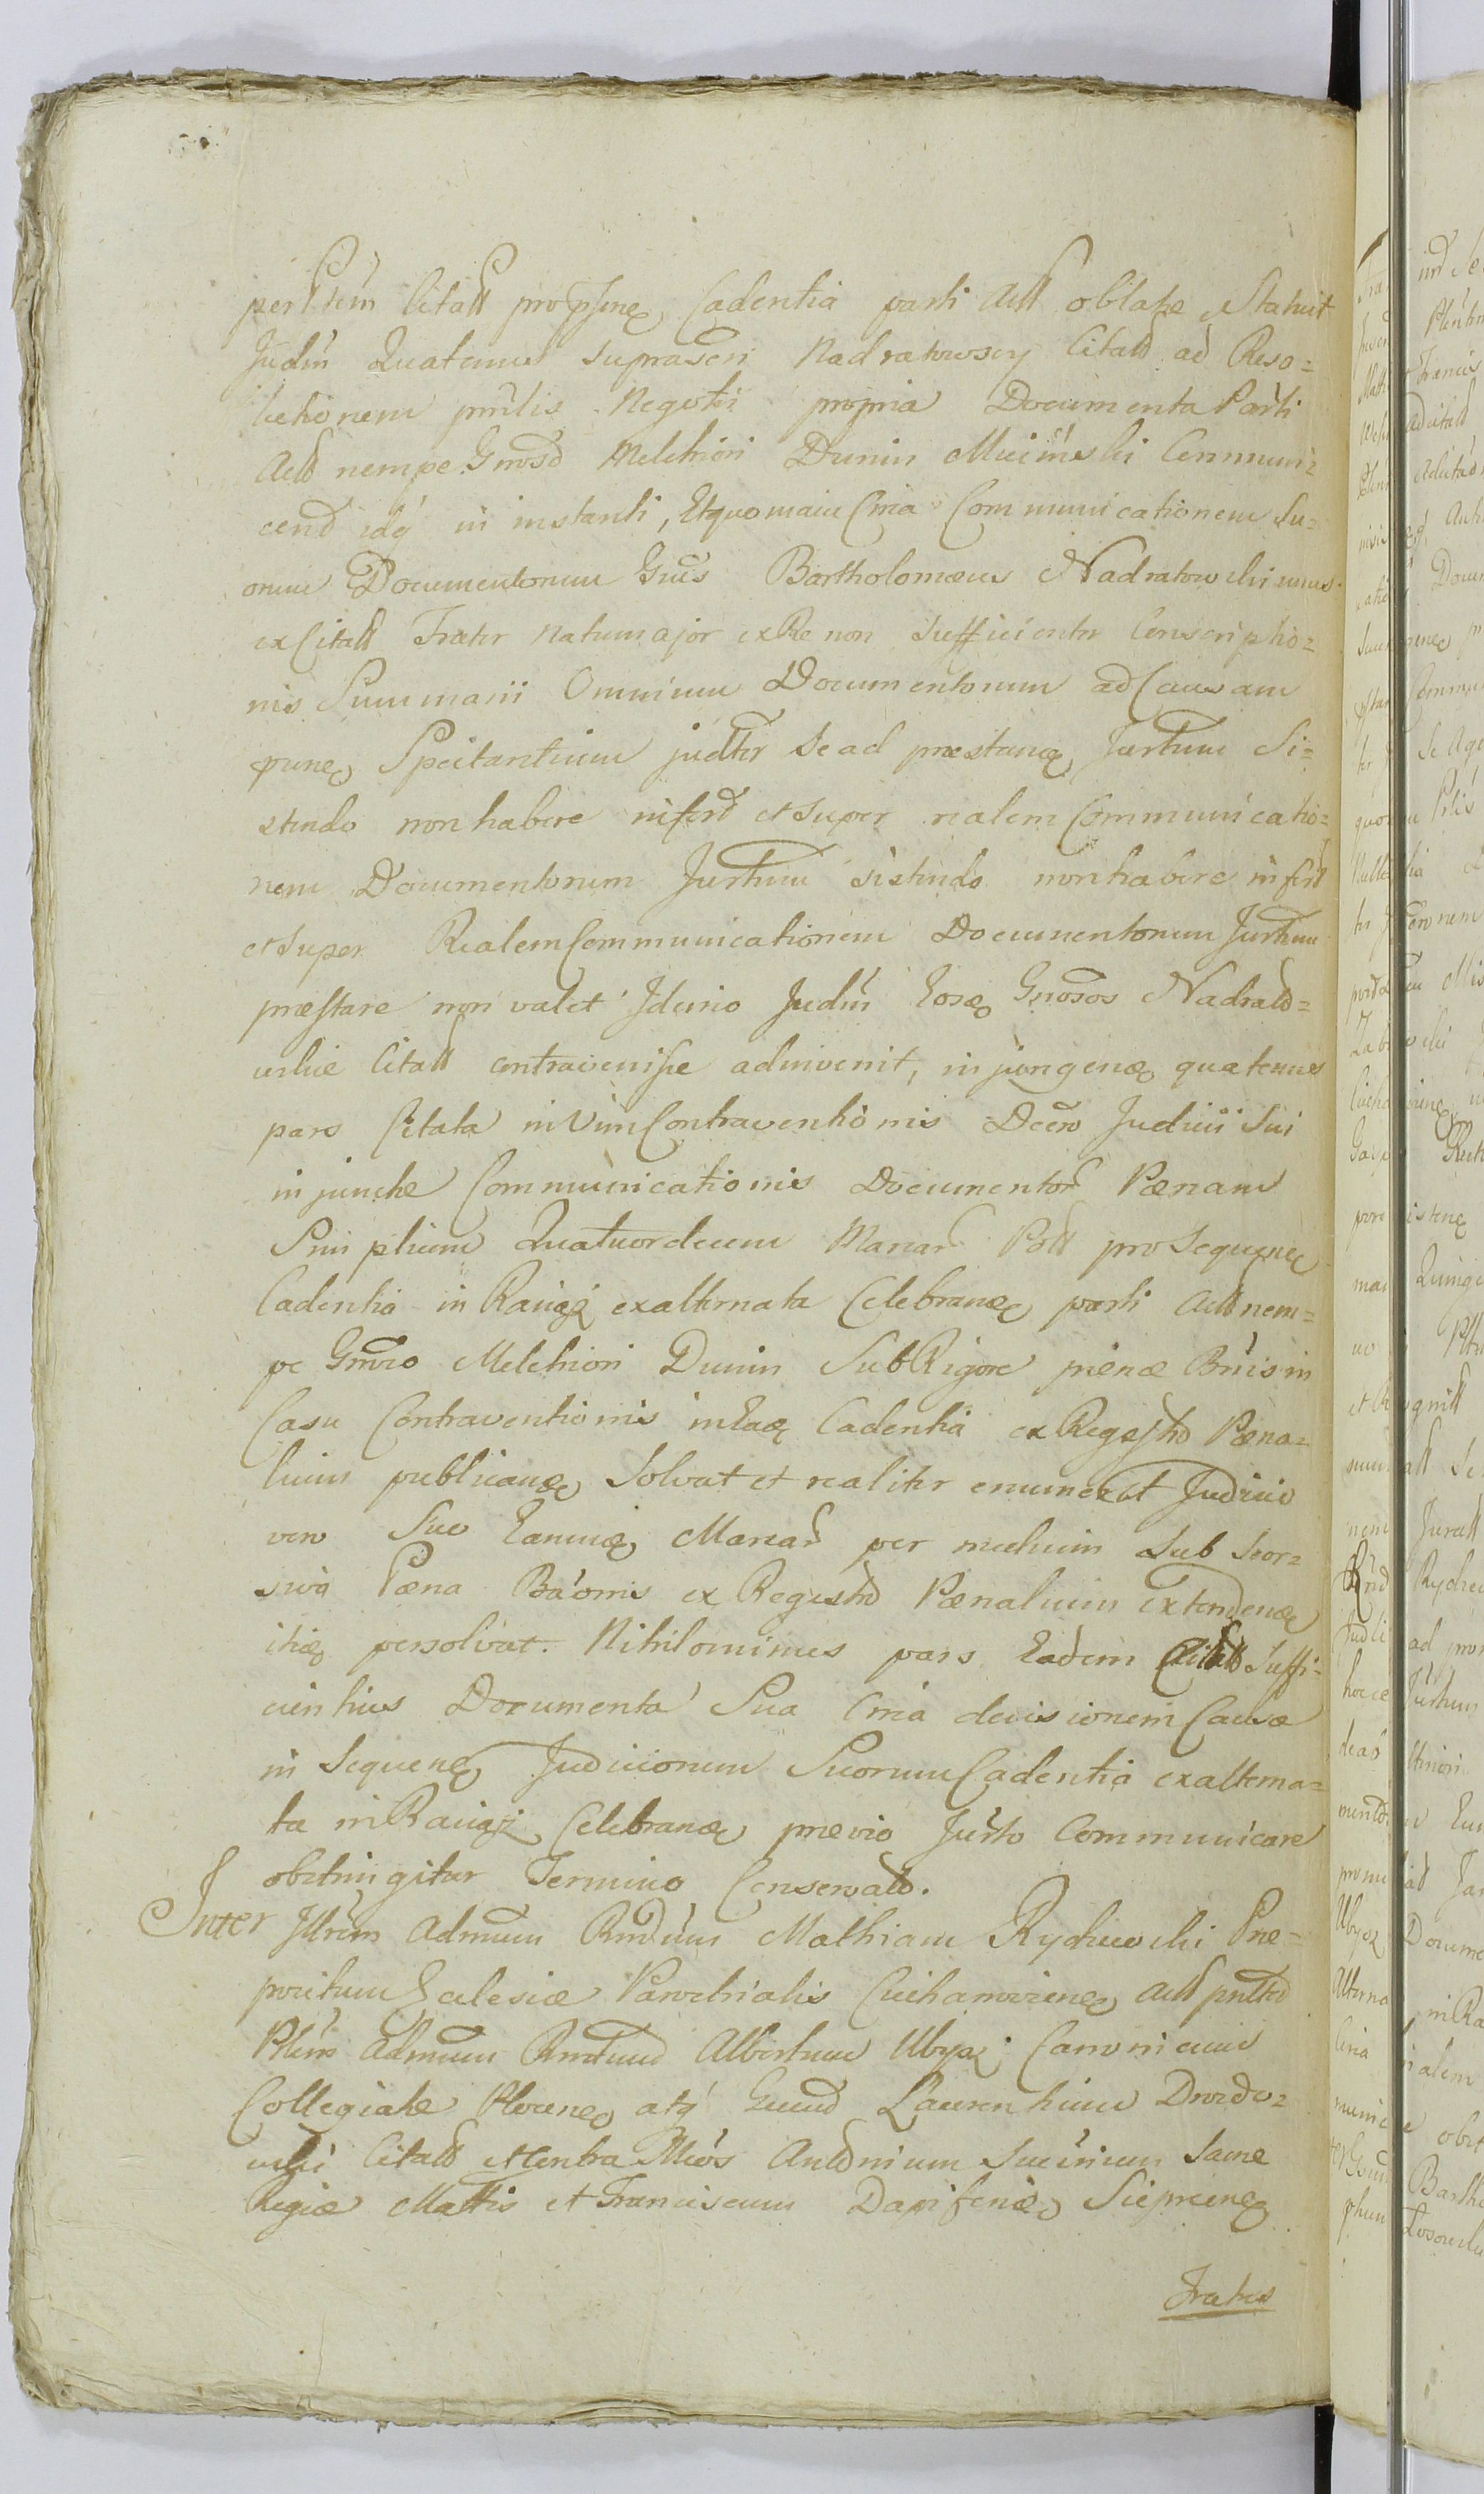 per Ptem Citatt pro psineq Cadentia parti Actt oblatæ Statuit
Judm Quatenus Suprascri Nadratowscy Citatt ad Reso=
lutionem pntis Negotii propria Documenta Parti
Actt nempe Gnoso Melchiori Dunin Mieinski Communi=
cend idq in instanti, Et quoniam Circa Communicationem Su=
orum Documentorum Gnus Bartholomæus Nadratowski unus
ex Citatt Frater natu major ex Re non Sufficienter Conscriptio=
nis Summarii Omnium Documentorum ad Causam
Spectantium judtr se ad præstanq Jurtum Si=
stendo non habere infert et super realem Communicatio=
nem Documentorum Jurtum sistendo non habere infert
et super Realem Communicationem Documentorum Jurtum
præstare non valet Idcirco Judm Eosq Gnosos Nadrato=
wskie Citatt contravenisse adinvenit, injungenq quatenus
pars Citata in Vim Contraventionis Decro Judicii Sui
injunctæ Communicationis Documentor Pænam
Simplicem Quatuordecem Marcar Poll pro Sequenq
Cadentia in Raciąż exalternata Celebranq parti Actt nem=
pe Gnoso Melchiori Dunin Sub Rigore pænæ Bnis in
Casu Contraventionis in Eaq Cadentia ex Regestro Pæna=
lium publicanq Solvat et realiter enumeret Judicio
vero Suo Eanuq Marcar per medium sub Seor=
siva Pæna Baonis ex Regestro Pænalium Extendenq
itiq persolvat. Nihilominus pars Eadem Citatt Suffi=
cientius Documenta Sua Circa decisionem Causæ
in Sequenq Judiciorum Suorum Cadentia exalterna=
ta in Raciąż Celebranq prævio Jurto Communicare
obstringitur Termino Conservato.
Inter Illrem Admum Rndum Mathiam Rychwoski Præ=
positum Ecclesiæ Parochialis Ciechanovieneq Actt
Pltem Admum Rndum Albertum Ubysz Canonicum
Collegiatæ Ploceneq atq Gnum Laurentium Drozdo=
wski Citatt et Contra Mcos Antonium Sacræ
Regiæ Mattis et Franciscum Dapiferiæ Sieprceneq
Fratres